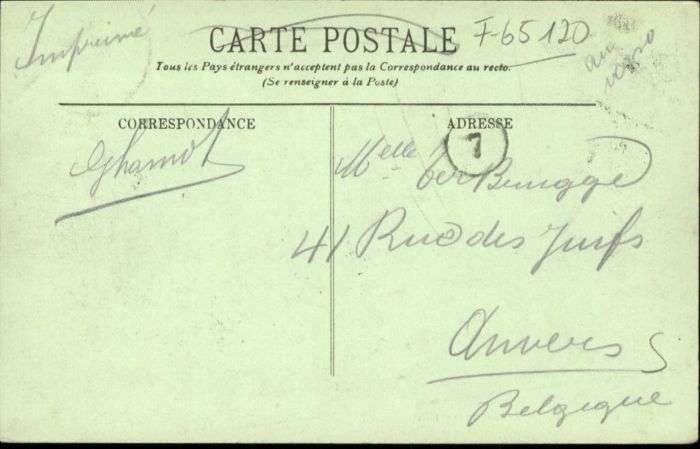 Imprimé
CARTE POSTALE
F-65120
au
verso
Tous les Pays étrangers n'acceptent pas la Correspondance au recto.
(Se renseigner à la Poste)
CORRESPONDANCE
ADRESSE
7
Melle
41 Rue des Juifs
Anvers
Belgique